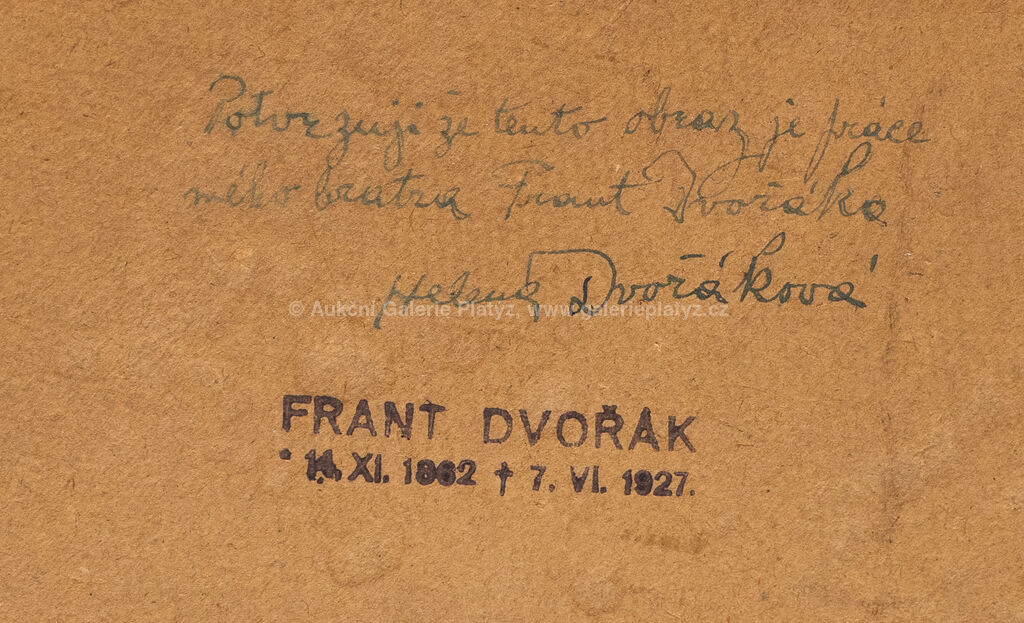 Potvrzuji že tento obraz je práce
mého bratra Frant Dvořáka
Helena Dvořáková
© Aukční Galerie Platýz, www.galerieplatyz.cz
FRANT DVOŘÁK
* 14. XI. 1862 † 7. VI. 1927.